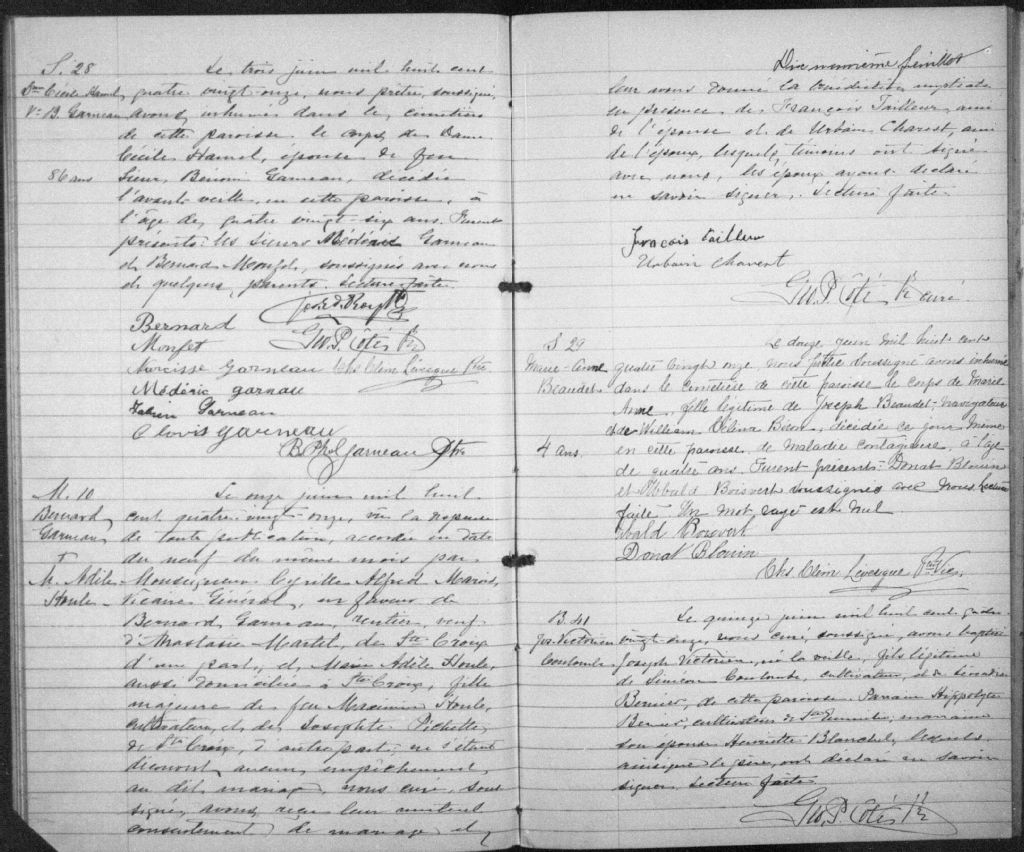 S. 28
Dme Cécile Hamel
Ve B. Garneau
86 ans
Le trois juin mil huit cent
quatre vingt-onze, nous prêtre, soussigné,
avons inhumé dans le cimetière
de cette paroisse le corps de Dame
Cécile Hamel, épouse de feu
Sieur Bénoni Garneau, décédée
l'avant veille, en cette paroisse, à
l'âge de quatre vingt-six ans. Furent
présents: les Sieurs Médéric Garneau
et Bernard Monfet, soussignés avec nous
et quelques parents. Lecture faite.
Bernard
Monfet
Geo. P. Côté, Ptr
Narcisse Garneau Chs Clém Lévesque Ptre
Médéric garneau
Garneau
Clovis garneau
B. Ph. Garneau Ptre
M. 10
Bernard
Garneau
&
M. Adèle
Houle
Le onze juin mil huit
cent quatre vingt-onze, vu la dispense
de toute publication, accordée en date
du neuf du même mois par
Monseigneur Cyrille Alfred Marois,
Vicaire Général, en faveur de
Bernard Garneau, rentier, veuf
d'Anastasie Martel, de Ste Croix
d'une part, et Marie Adèle Houle,
aussi domiciliée à Ste Croix, fille
majeure de feu Maximin Houle,
cultivateur, et de Josephte Pichette,
de Ste Croix, d'autre part; ne s'étant
découvert aucun empêchement
au dit mariage, nous curé, sous-
signé, avons reçu leur mutuel
consentement de mariage et
Dix neuvième feuillet
leur avons donné la bénédiction nuptiale
en présence de François Tailleur, ami
de l'épouse et de Urbain Charest, ami
de l'époux, lesquels témoins ont signé
avec nous, les époux ayant déclaré
ne savoir signer. Lecture faite.
François Tailleur
Urbain Charest
Geo. P. Côté, Ptr Curé
S. 29
Marie-Anne
Beaudet
4 ans
Le douze juin mil huit cent
quatre vingt onze nous prêtre soussigné avons inhumé
dans le cimetière de cette paroisse le corps de Marie
Anne, fille légitime de Joseph Beaudet navigateur
& de William Délina décédée ce jour même
en cette paroisse de maladie contagieuse, à l'âge
de quatre ans. Furent présents: Donat Blouin
et Boisvert soussignés avec nous. Lecture
faite. Un mot rayé est nul
Boisvert
Donat Blouin
Chs Clém Lévesque Ptre Vic.
B. 41
Jos. Victorien
Coulombe
Le quinze juin mil huit cent quatre
vingt-onze, nous curé, soussigné, avons baptisé
Joseph Victorien, né la veille, fils légitime
de Siméon Coulombe, cultivateur, et de
Bernier, de cette paroisse. Parrain Hippolyte
Bernier, cultivateur de marraine
son épouse Henriette Blanchet, lesquels
ainsi que le père, ont déclaré ne savoir
signer. Lecture faite.
Geo. P. Côté, Ptr